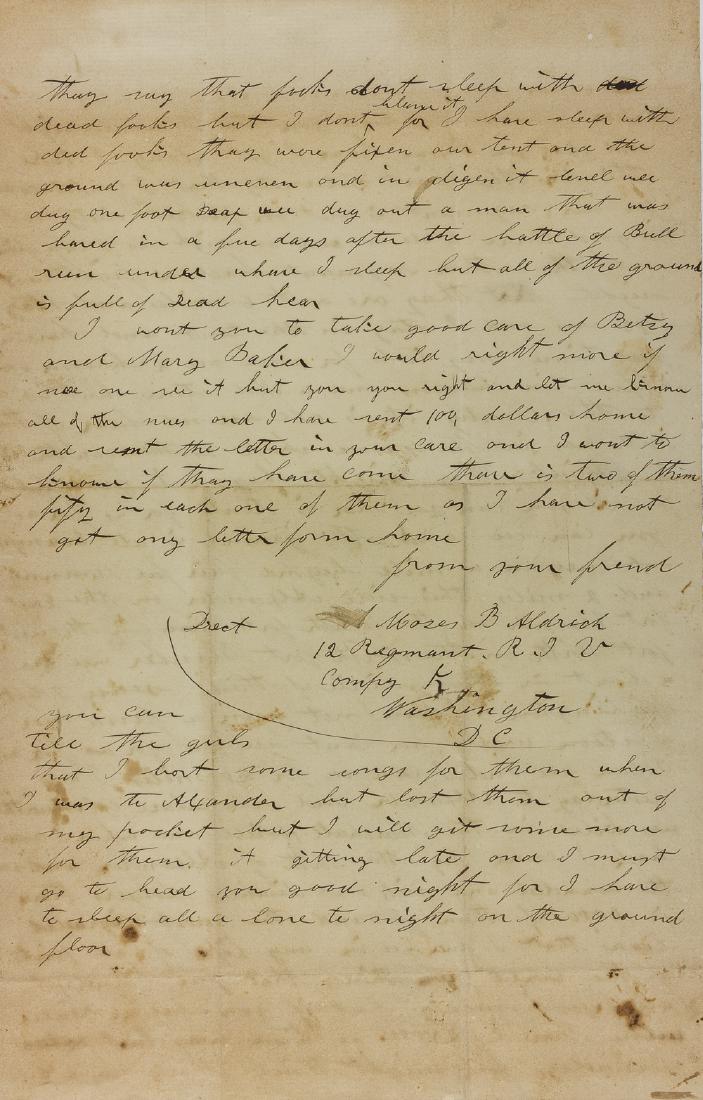 thay say that fooks dont sleep with
dead fooks but I dont beleave it for I have sleep with
ded fooks thay were fixen our tent and the
ground was uneven and in digen it level wee
dug one foot Deap wee dug out a man that was
bured in a fue days after the battle of Bull
run under whare I sleep but all of the ground
is full of Dead hear
I wont you to take good care of Betsy
and Mary Baker I would right more if
noe one see it but you you right and let me knnow
all of the nues and I have sent 100, dollars home
and sent the letter in your care and I wont to
knnow if thay have come thare is two of them
fifty in each one of them as I have not
got any letter form home
from your frend
Drect Moses B Aldrich
12 Regmant. R. I V
Compy K
Washington
D C
you can
tell the gurls
that I bort some songs for them when
I was to Alxander but lost them out of
my pocket but I will git some more
for them. it gitting late and I must
go to bead you good night for I have
to sleep all a lone to night on the ground
floor